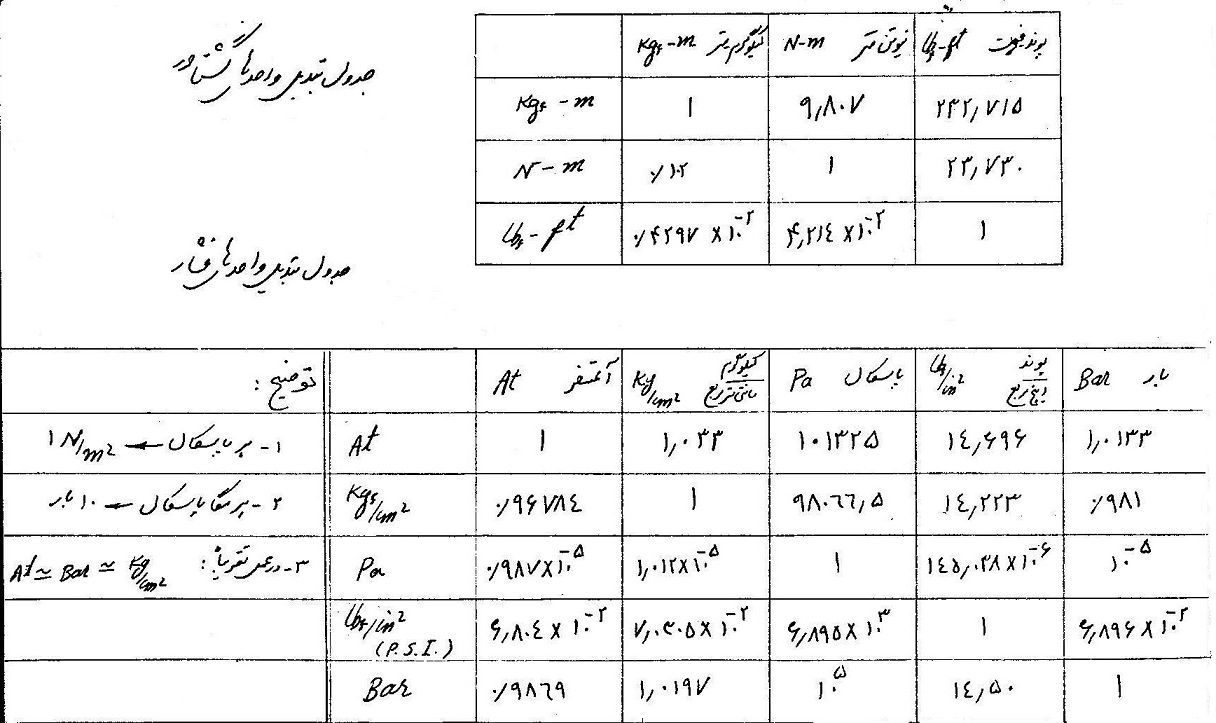 جدول تبدیل واحدهای گشتاور
کیلوگرم متر Kgf-m | نیوتن متر N-m | پوند فوت Lbf-ft
Kgf-m | ۱ | ۹٫۸۰۷ | ۲۳۲٫۷۱۵
N-m | ٫۱۰۲ | ۱ | ۲۳٫۷۳۰
Lbf-ft | ٫۴۲۹۷ × ۱۰⁻² | ۴٫۲۱۴ × ۱۰⁻² | ۱
جدول تبدیل واحدهای فشار
توضیح: | آتمسفر At | کیلوگرم / سانتی‌متر مربع Kg/cm² | پاسکال Pa | پوند / اینچ مربع Lbf/in² | بار Bar
۱- هر پاسکال ← ۱ N/m² | At | ۱ | ۱٫۰۳۳ | ۱۰۱۳۲۵ | ۱۴٫۶۹۶ | ۱٫۰۱۳۳
۲- هر مگا پاسکال ← ۱۰ بار | Kgf/cm² | ٫۹۶۷۸۴ | ۱ | ۹۸۰۶۶٫۵ | ۱۴٫۲۲۳ | ٫۹۸۱
۳- در عمل تقریباً: At ≃ Bar ≃ Kg/cm² | Pa | ٫۹۸۷×۱۰⁻⁵ | ۱٫۰۱۲×۱۰⁻⁵ | ۱ | ۱۴۵٫۰۳۸×۱۰⁻۶ | ۱۰⁻⁵
Lbf/in² (P.S.I.) | ۶٫۸۰۴ × ۱۰⁻² | ۷٫۰۳۰۵ × ۱۰⁻² | ۶٫۸۹۵ × ۱۰³ | ۱ | ۶٫۸۹۶ × ۱۰⁻²
Bar | ٫۹۸۶۹ | ۱٫۰۱۹۷ | ۱۰⁵ | ۱۴٫۵۰ | ۱